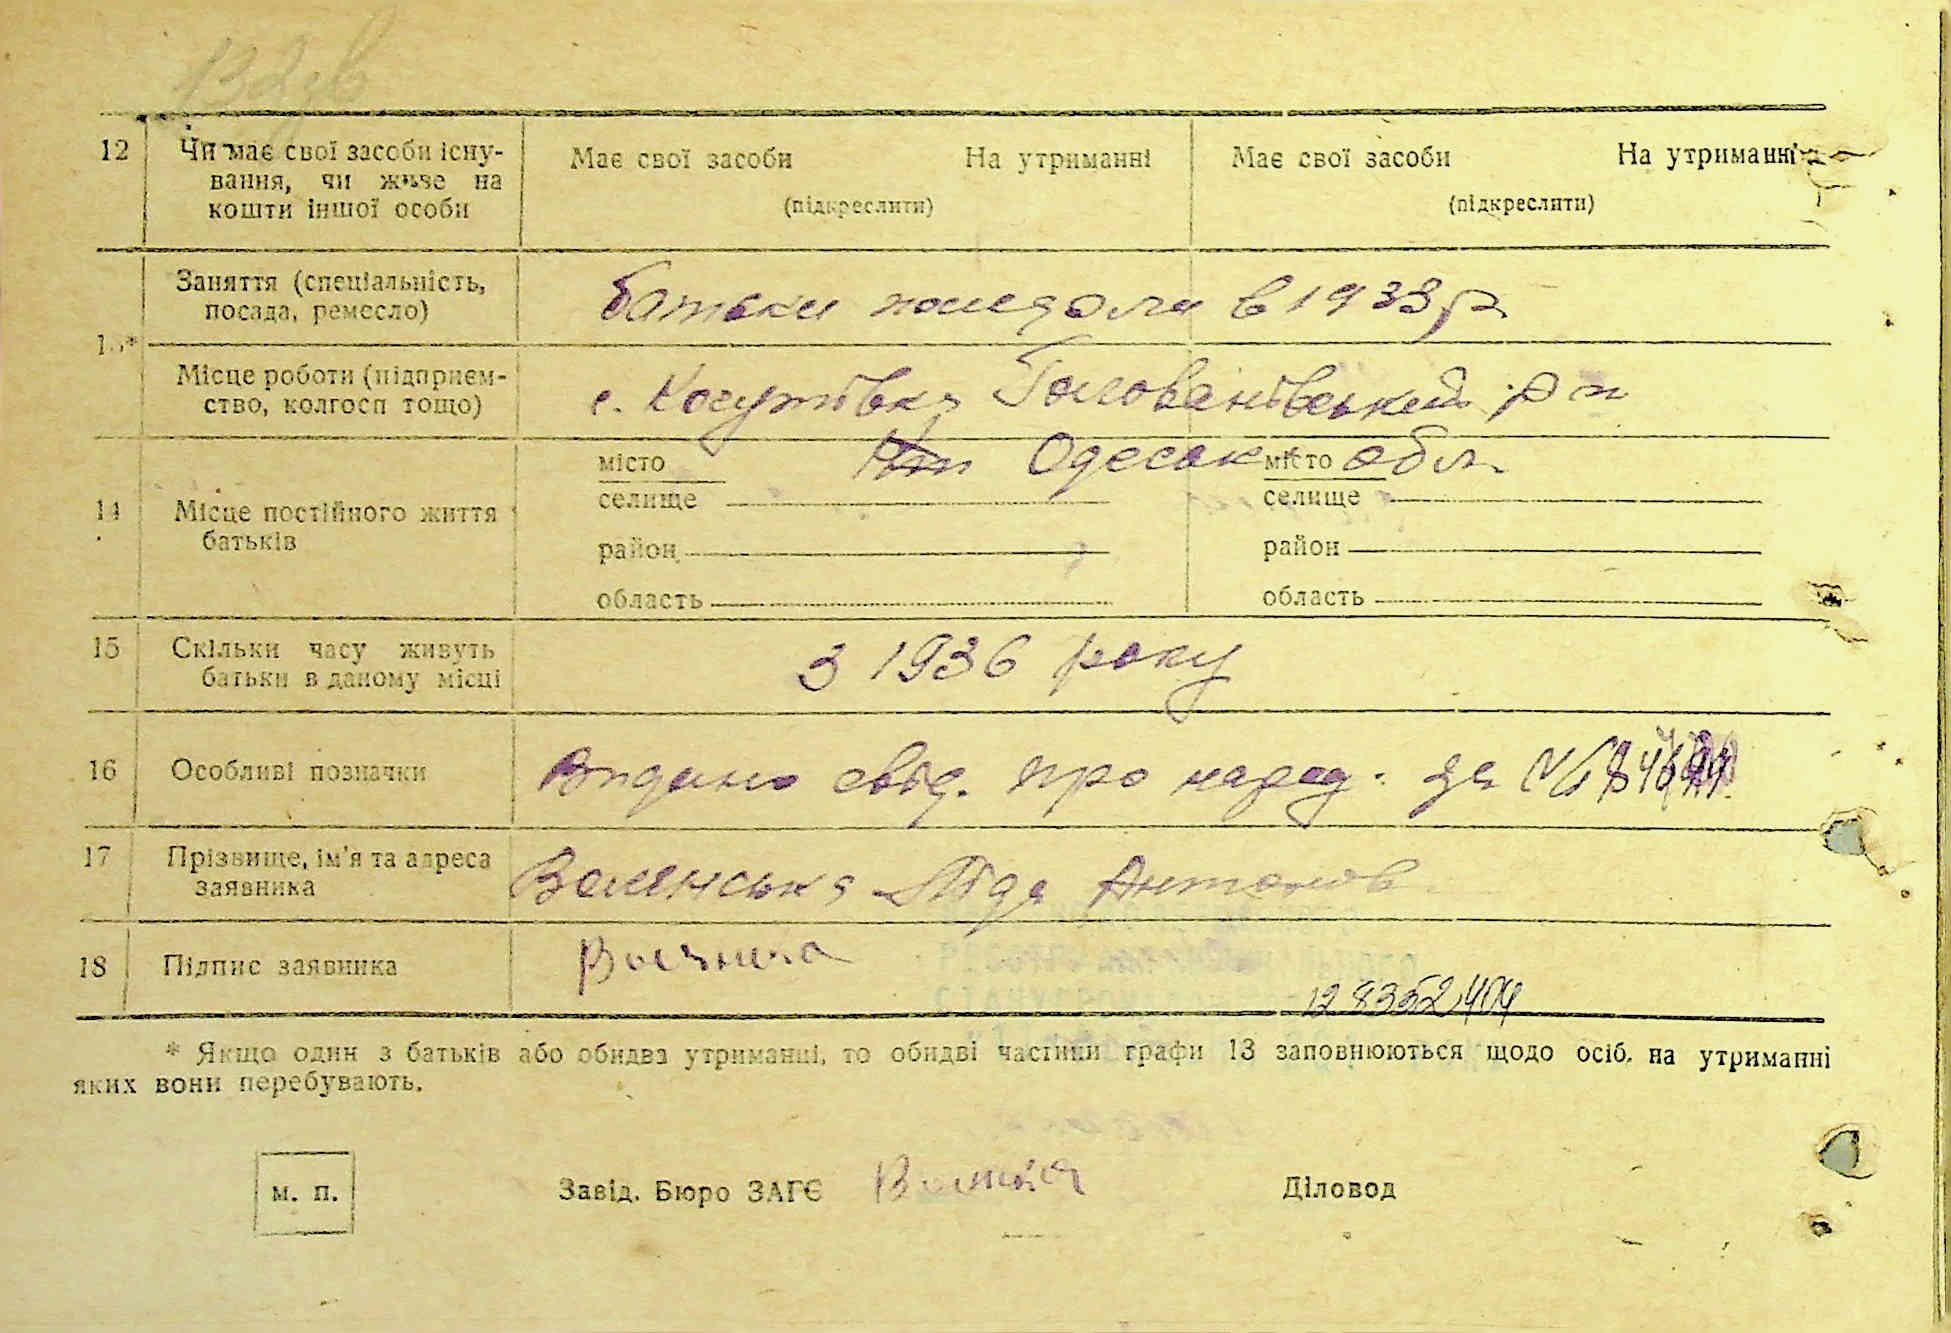 12 Чи має свої засоби існу-
вання, чи живе на
кошти іншої особи
Має свої засоби На утриманні
(підкреслити)
Має свої засоби На утриманні
(підкреслити)
Заняття (спеціальність,
посада, ремесло)
батьки в 1933 р
13*
Місце роботи (підприєм-
ство, колгосп тощо)
с. Голованівський р н
14 Місце постійного життя
батьків
Одеськ обл
місто
селище
район
область
місто
селище
район
область
15 Скільки часу живуть
батьки в даному місці
З 1936 року
16 Особливі позначки
Видано свід. про народ. за №
17 Прізвище, ім'я та адреса
заявника
Ліда Антонов
18 Підпис заявника
128352404
* Якщо один з батьків або обидва утриманці, то обидві частини графи 13 заповнюються щодо осіб, на утриманні
яких вони перебувають.
М. П.
Завід. Бюро ЗАГЄ Діловод